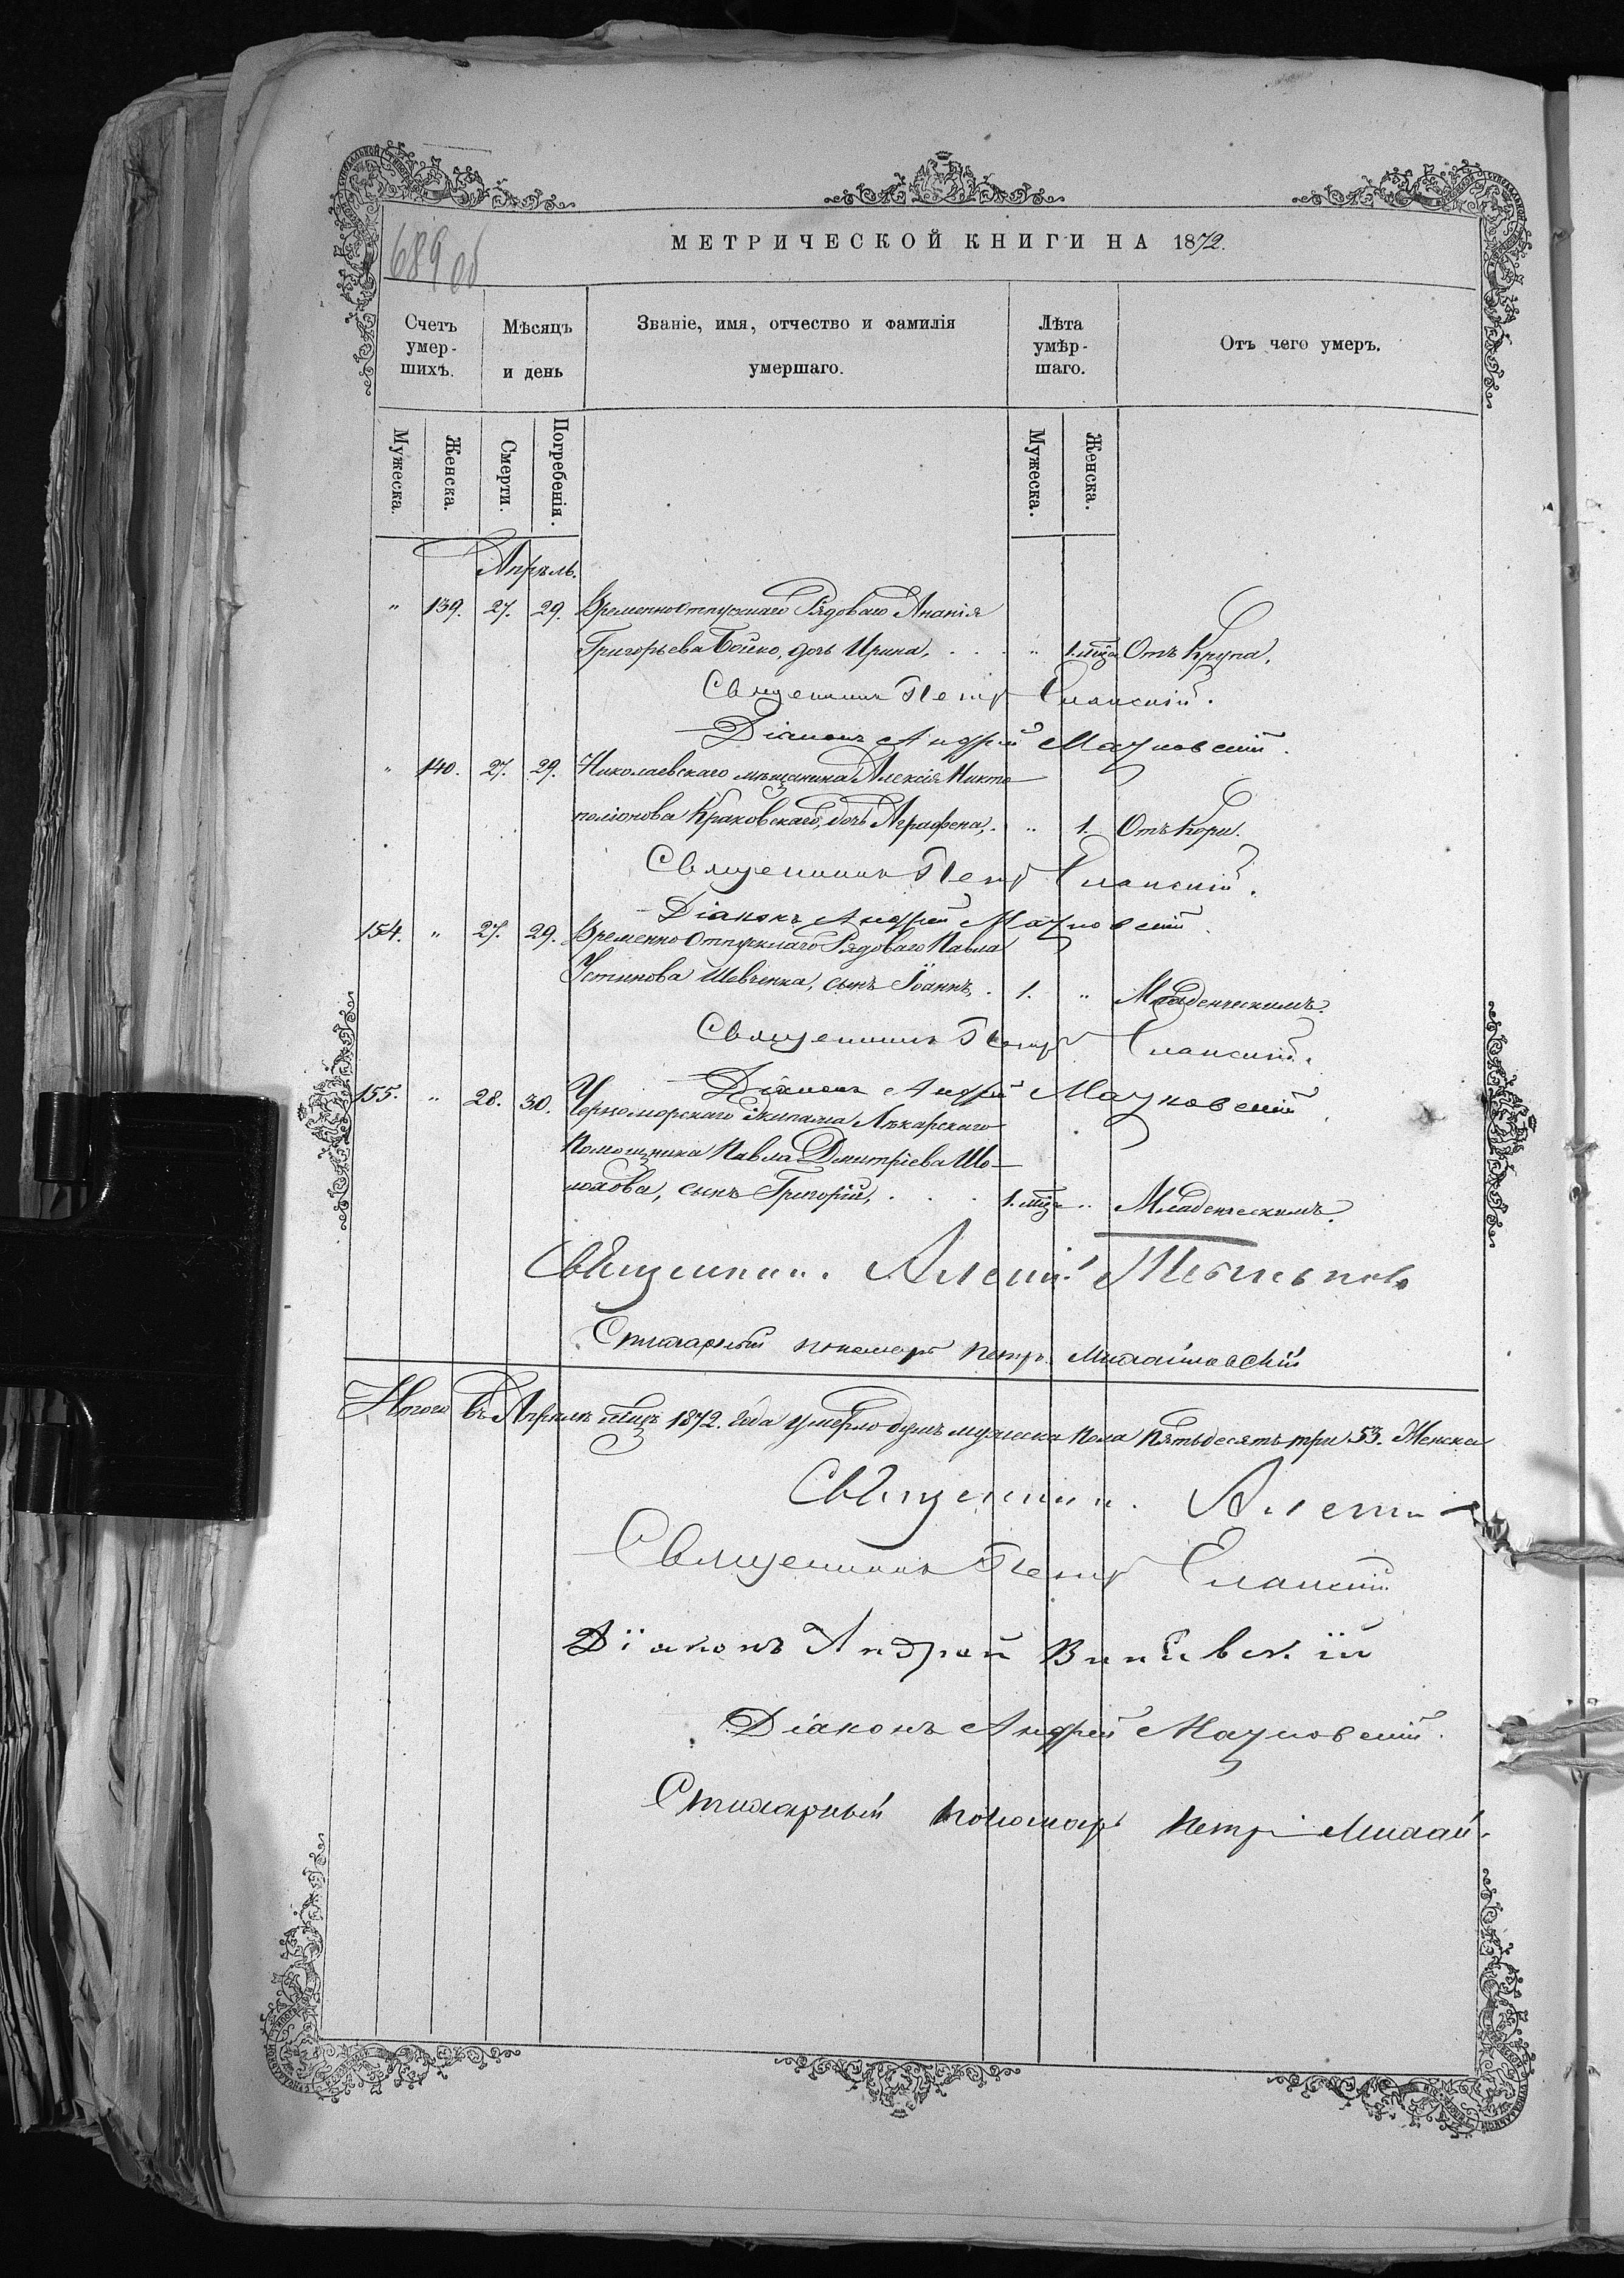 689 об
МЕТРИЧЕСКОЙ КНИГИ НА 1872.
Счетъ умер-шихъ.
Мѣсяцъ и день
Званіе, имя, отчество и фамилія умершаго.
Лѣта умѣр-шаго.
Отъ чего умеръ.
Мужеска.
Женска.
Смерти.
Погребенія.
Мужеска.
Женска.
Апрѣль.
" 139. 27. 29. Временно отпускнаго Рядоваго Ананія
Григорьева Бойко, дочь Ирина, . . . " 1. мца Отъ Крупа.
Священникъ Петръ Еланскій.
Діаконъ Андрей Мацковскій.
" 140. 27. 29. Николаевскаго мѣщанина Алексія Никто-
поліонова Краковскаго, дочь Аграфена, . " 1. Отъ Кори.
Священникъ Петръ Еланскій.
Діаконъ Андрей Мацковскій.
154. " 27. 29. Временно Отпускнаго Рядоваго Павла
Устинова Шевченка, сынъ Іоаннъ, . 1. " Младенческимъ.
Священникъ Петръ Еланскій.
Діаконъ Андрей Мацковскій.
155. " 28. 30. Черноморскаго Экипажа Лѣкарскаго
Помощника Павла Дмитріева Шо-
лохова, сынъ Григорій, . . . 1. мца " Младенческимъ.
Священникъ Алексій
Стихарный пономарь Петръ Михайловскій
Итого въ Апрѣлѣ мцѣ 1872. года умерло душъ мужеска пола пятьдесятъ три 53. Женска
Священникъ Алексій
Священникъ Петръ Еланскій
Діаконъ Андрей
Діаконъ Андрей Мацковскій.
Стихарный пономарь Петръ Михай-